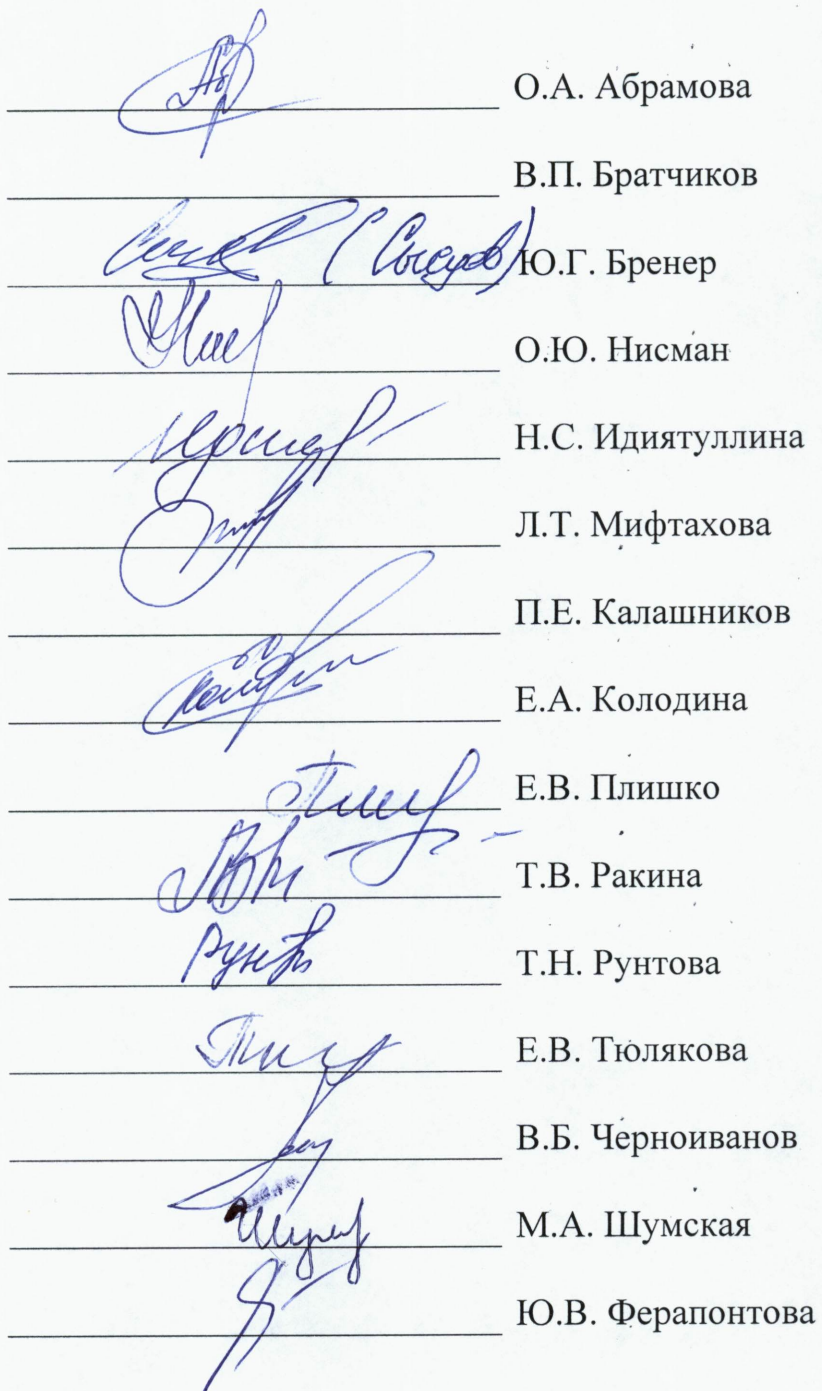 О.А. Абрамова
В.П. Братчиков
(Сысуев) Ю.Г. Бренер
О.Ю. Нисман
Н.С. Идиятуллина
Л.Т. Мифтахова
П.Е. Калашников
Е.А. Колодина
Е.В. Плишко
Т.В. Ракина
Т.Н. Рунтова
Е.В. Тюлякова
В.Б. Черноиванов
М.А. Шумская
Ю.В. Ферапонтова